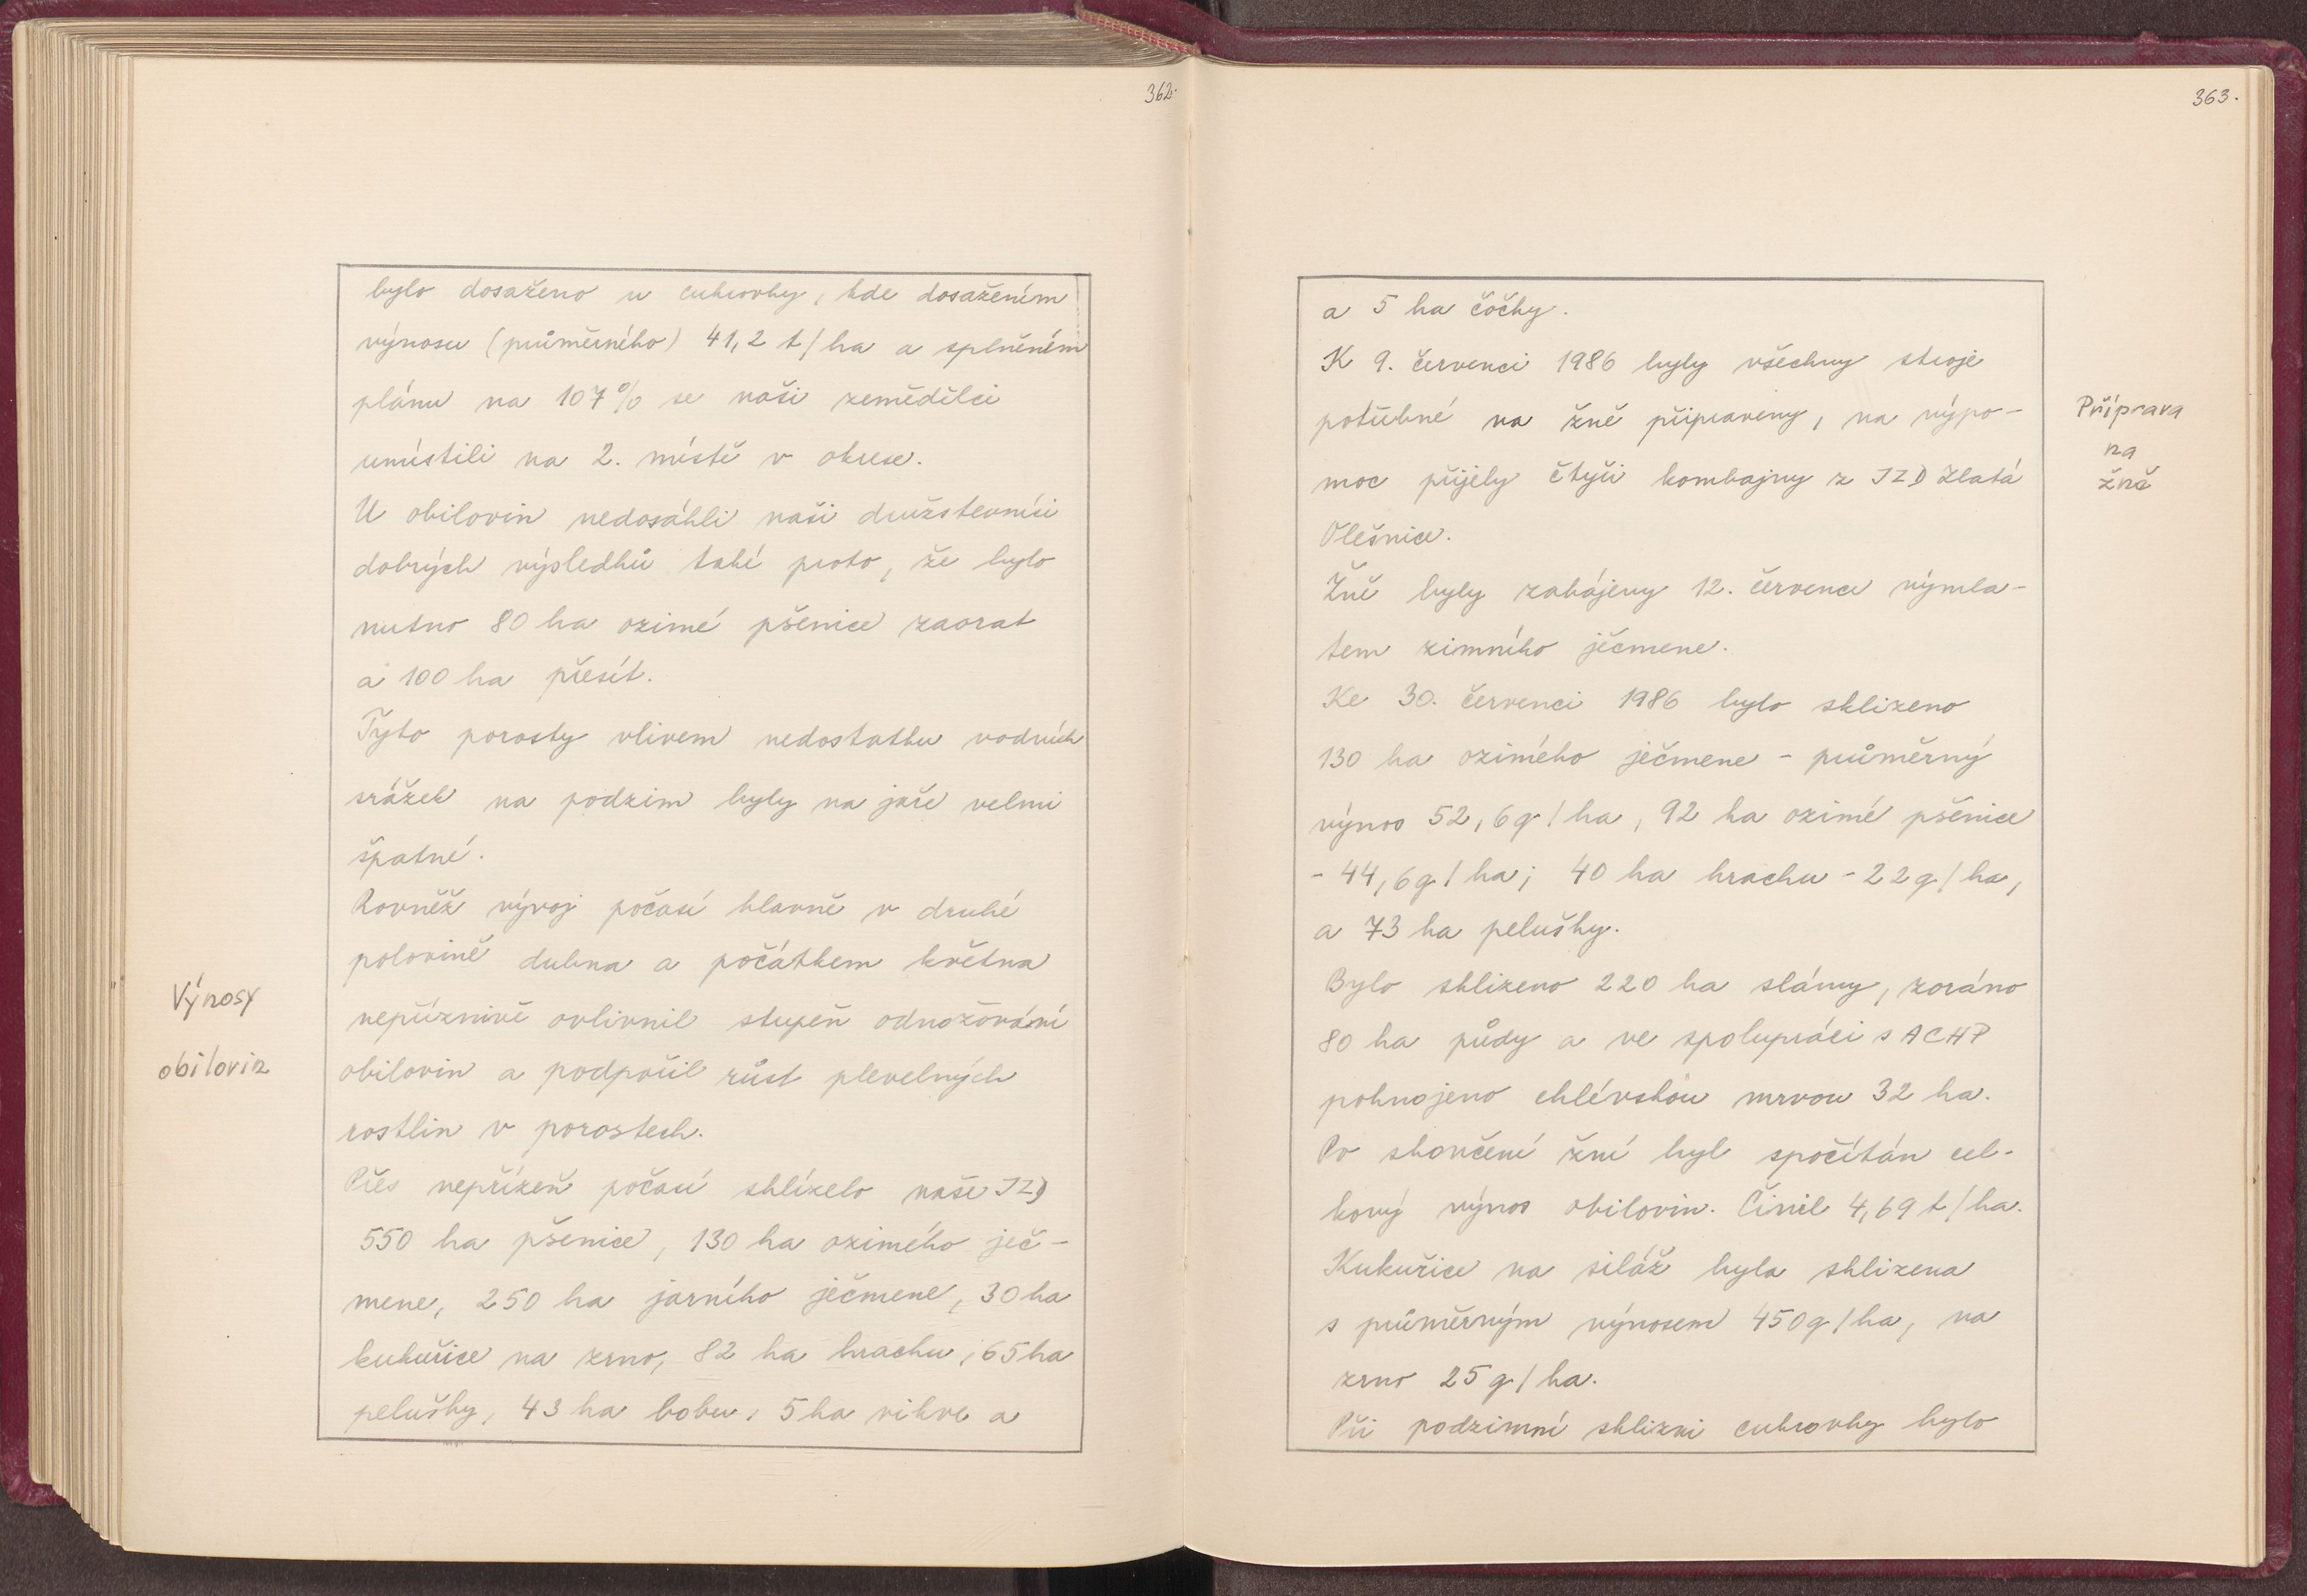 362.
bylo dosaženo u cukrovky, kde dosažením
výnosu (průměrného) 41,2 t/ha a splněním
plánu na 107% se naši zemědělci
umístili na 2. místě v okrese.
U obilovin nedosáhli naši družstevníci
dobrých výsledků také proto, že bylo
nutno 80 ha ozimé pšenice zaorat
a 100 ha přesít.
Tyto porosty vlivem nedostatku vodních
srážek na podzim byly na jaře velmi
špatné.
Rovněž vývoj počasí hlavně v druhé
polovině dubna a počátkem května
nepříznivě ovlivnil stupeň odnožování
obilovin a podpořil růst plevelných
rostlin v porostech.
Přes nepřízeň počasí sklízelo naše JZD
550 ha pšenice, 130 ha ozimého ječ-
mene, 250 ha jarního ječmene, 30 ha
kukuřice na zrno, 82 ha hrachu, 65 ha
pelušky, 43 ha bobu, 5 ha vikve a
Výnosy
obilovin
363.
a 5 ha čočky.
K 9. červenci 1986 byly všechny stroje
potřebné na žně připraveny, na výpo-
moc přijely čtyři kombajny z JZD Zlatá
Olešnice.
Žně byly zahájeny 12. července výmla-
tem zimního ječmene.
Ke 30. červenci 1986 bylo sklizeno
130 ha ozimého ječmene - průměrný
výnos 52,6 q/ha, 92 ha ozimé pšenice
- 44,6 q/ha; 40 ha hrachu - 22 q/ha,
a 73 ha pelušky.
Bylo sklizeno 220 ha slámy, zoráno
80 ha půdy a ve spolupráci s ACHP
pohnojeno chlévskou mrvou 32 ha.
Po skončení žní byl spočítán cel-
kový výnos obilovin. Činil 4,69 t/ha.
Kukuřice na siláž byla sklizena
s průměrným výnosem 450 q/ha, na
zrno 25 q/ha.
Při podzimní sklizni cukrovky bylo
Příprava
na
žně